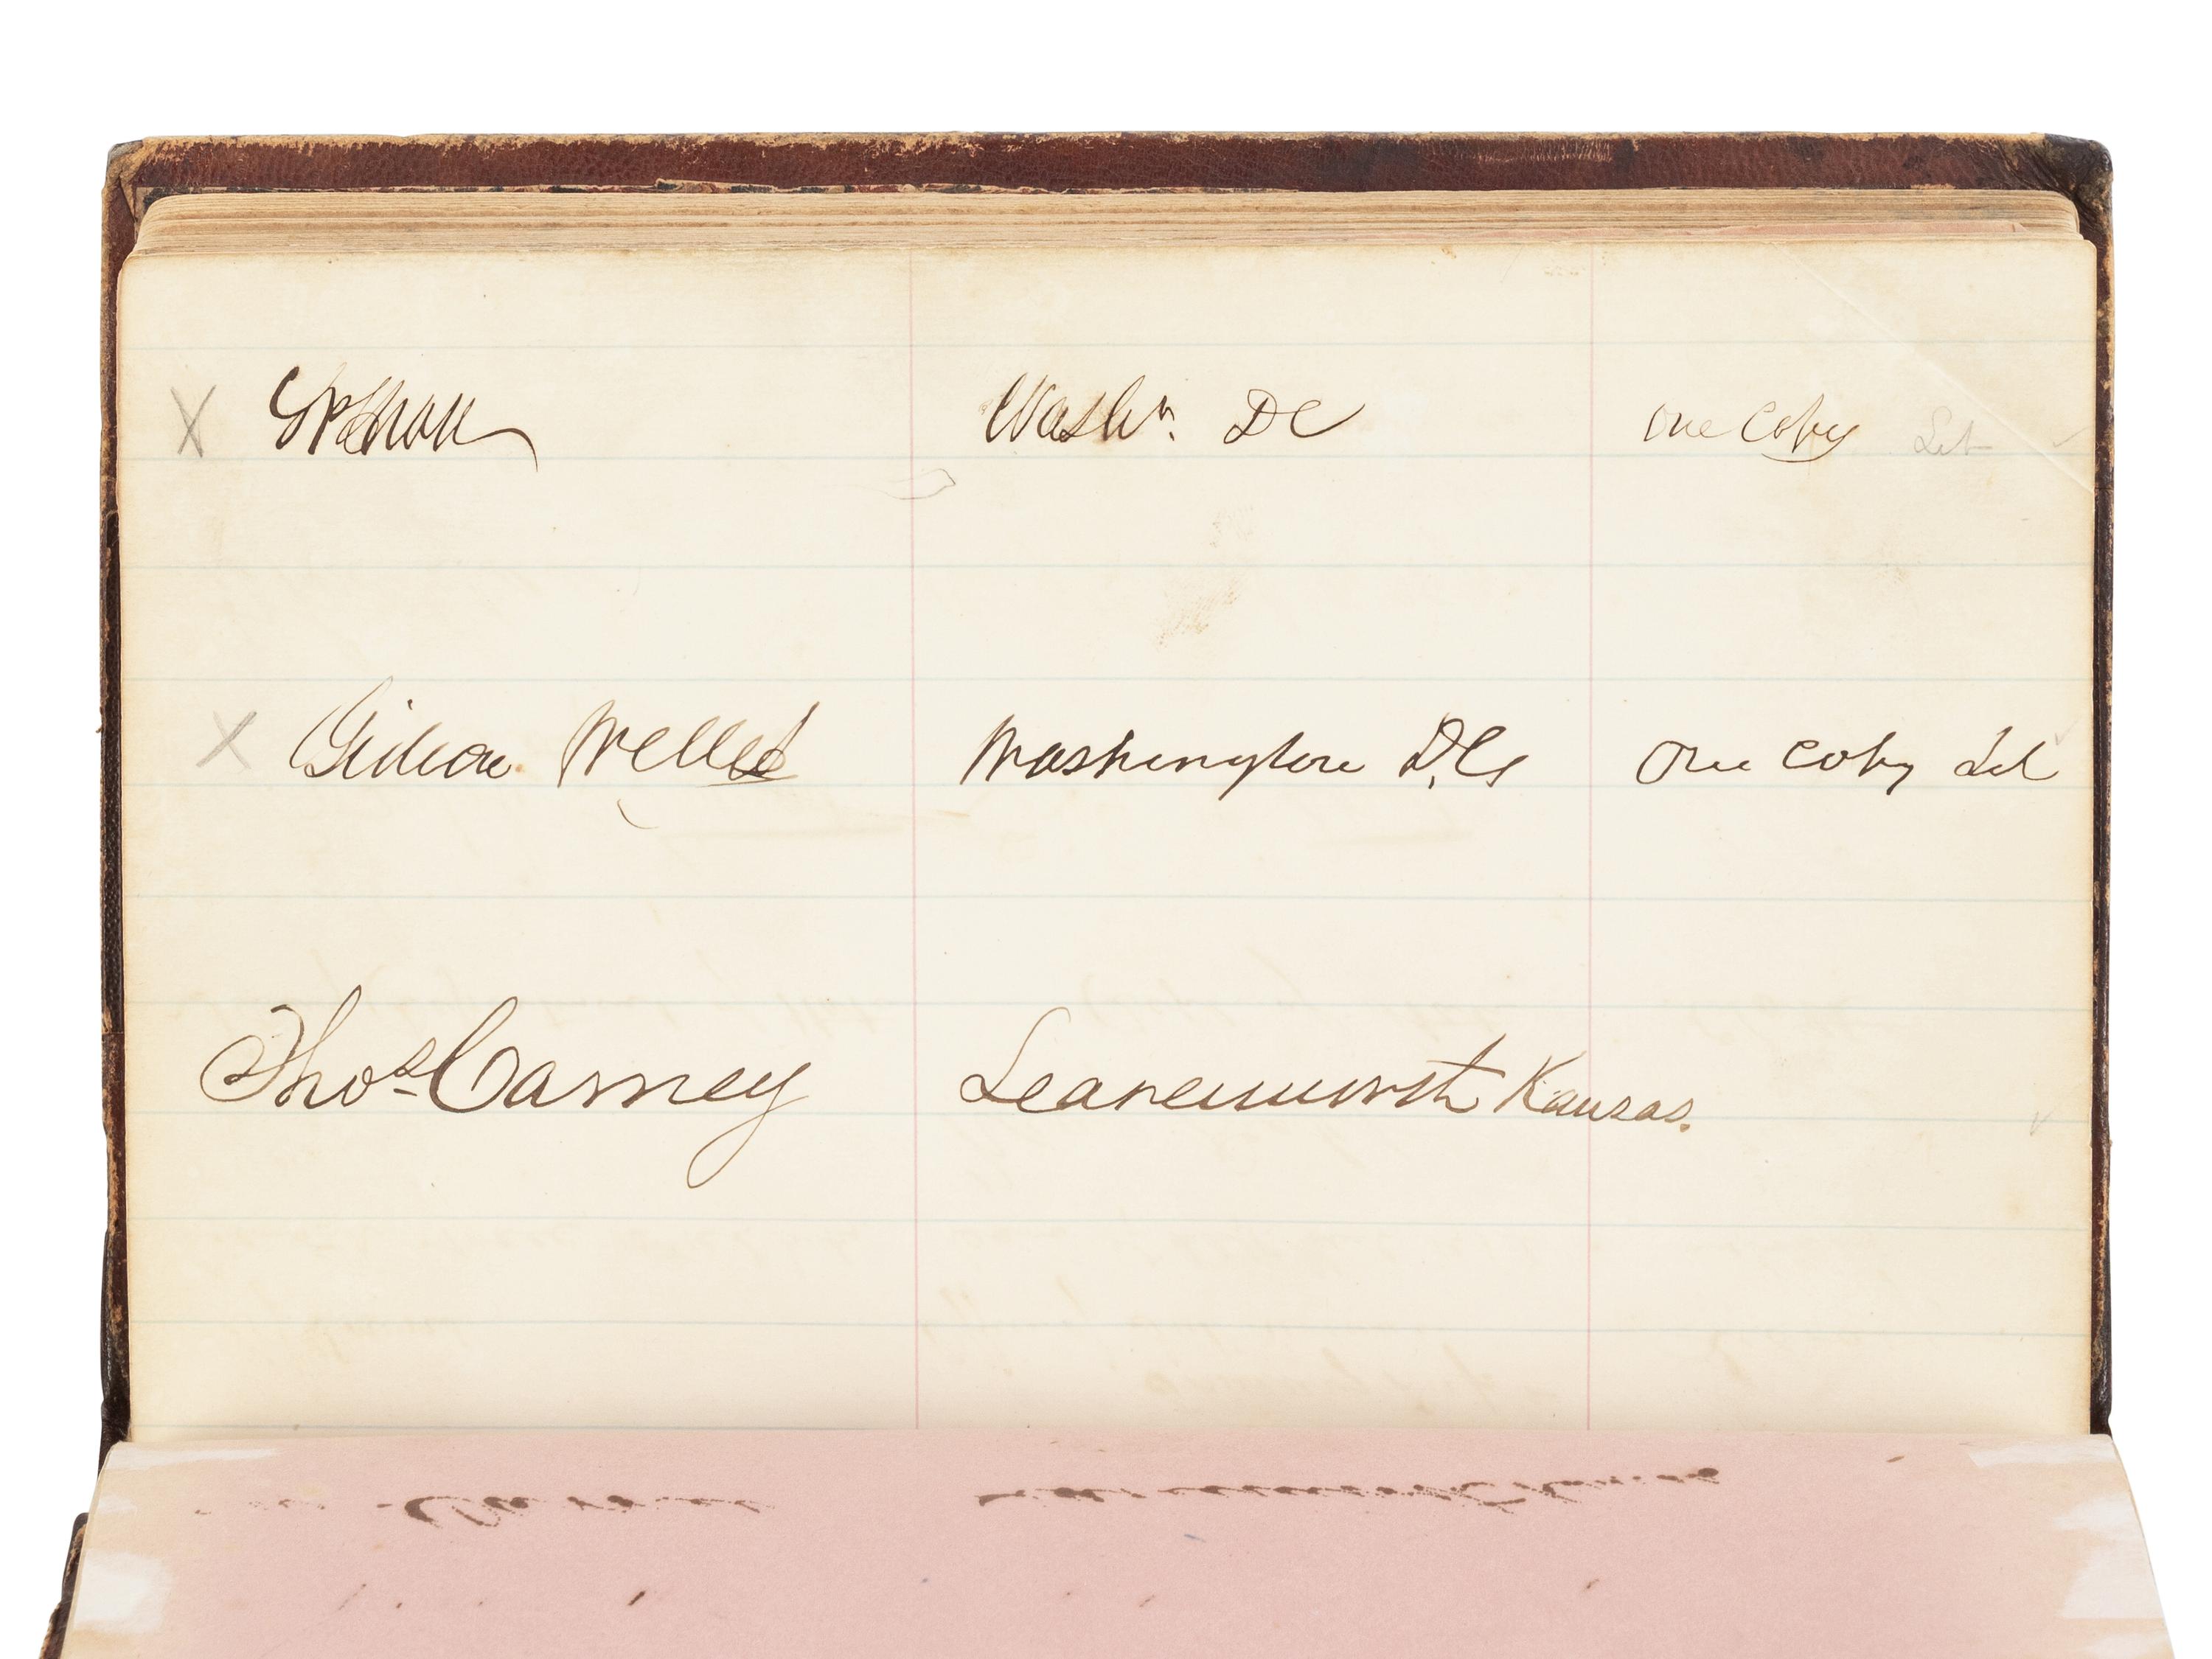 X Washⁿ. DC One Copy
X Gideon Welles Washington D.C. One Copy
Thoˢ Carney Leavenworth Kansas.